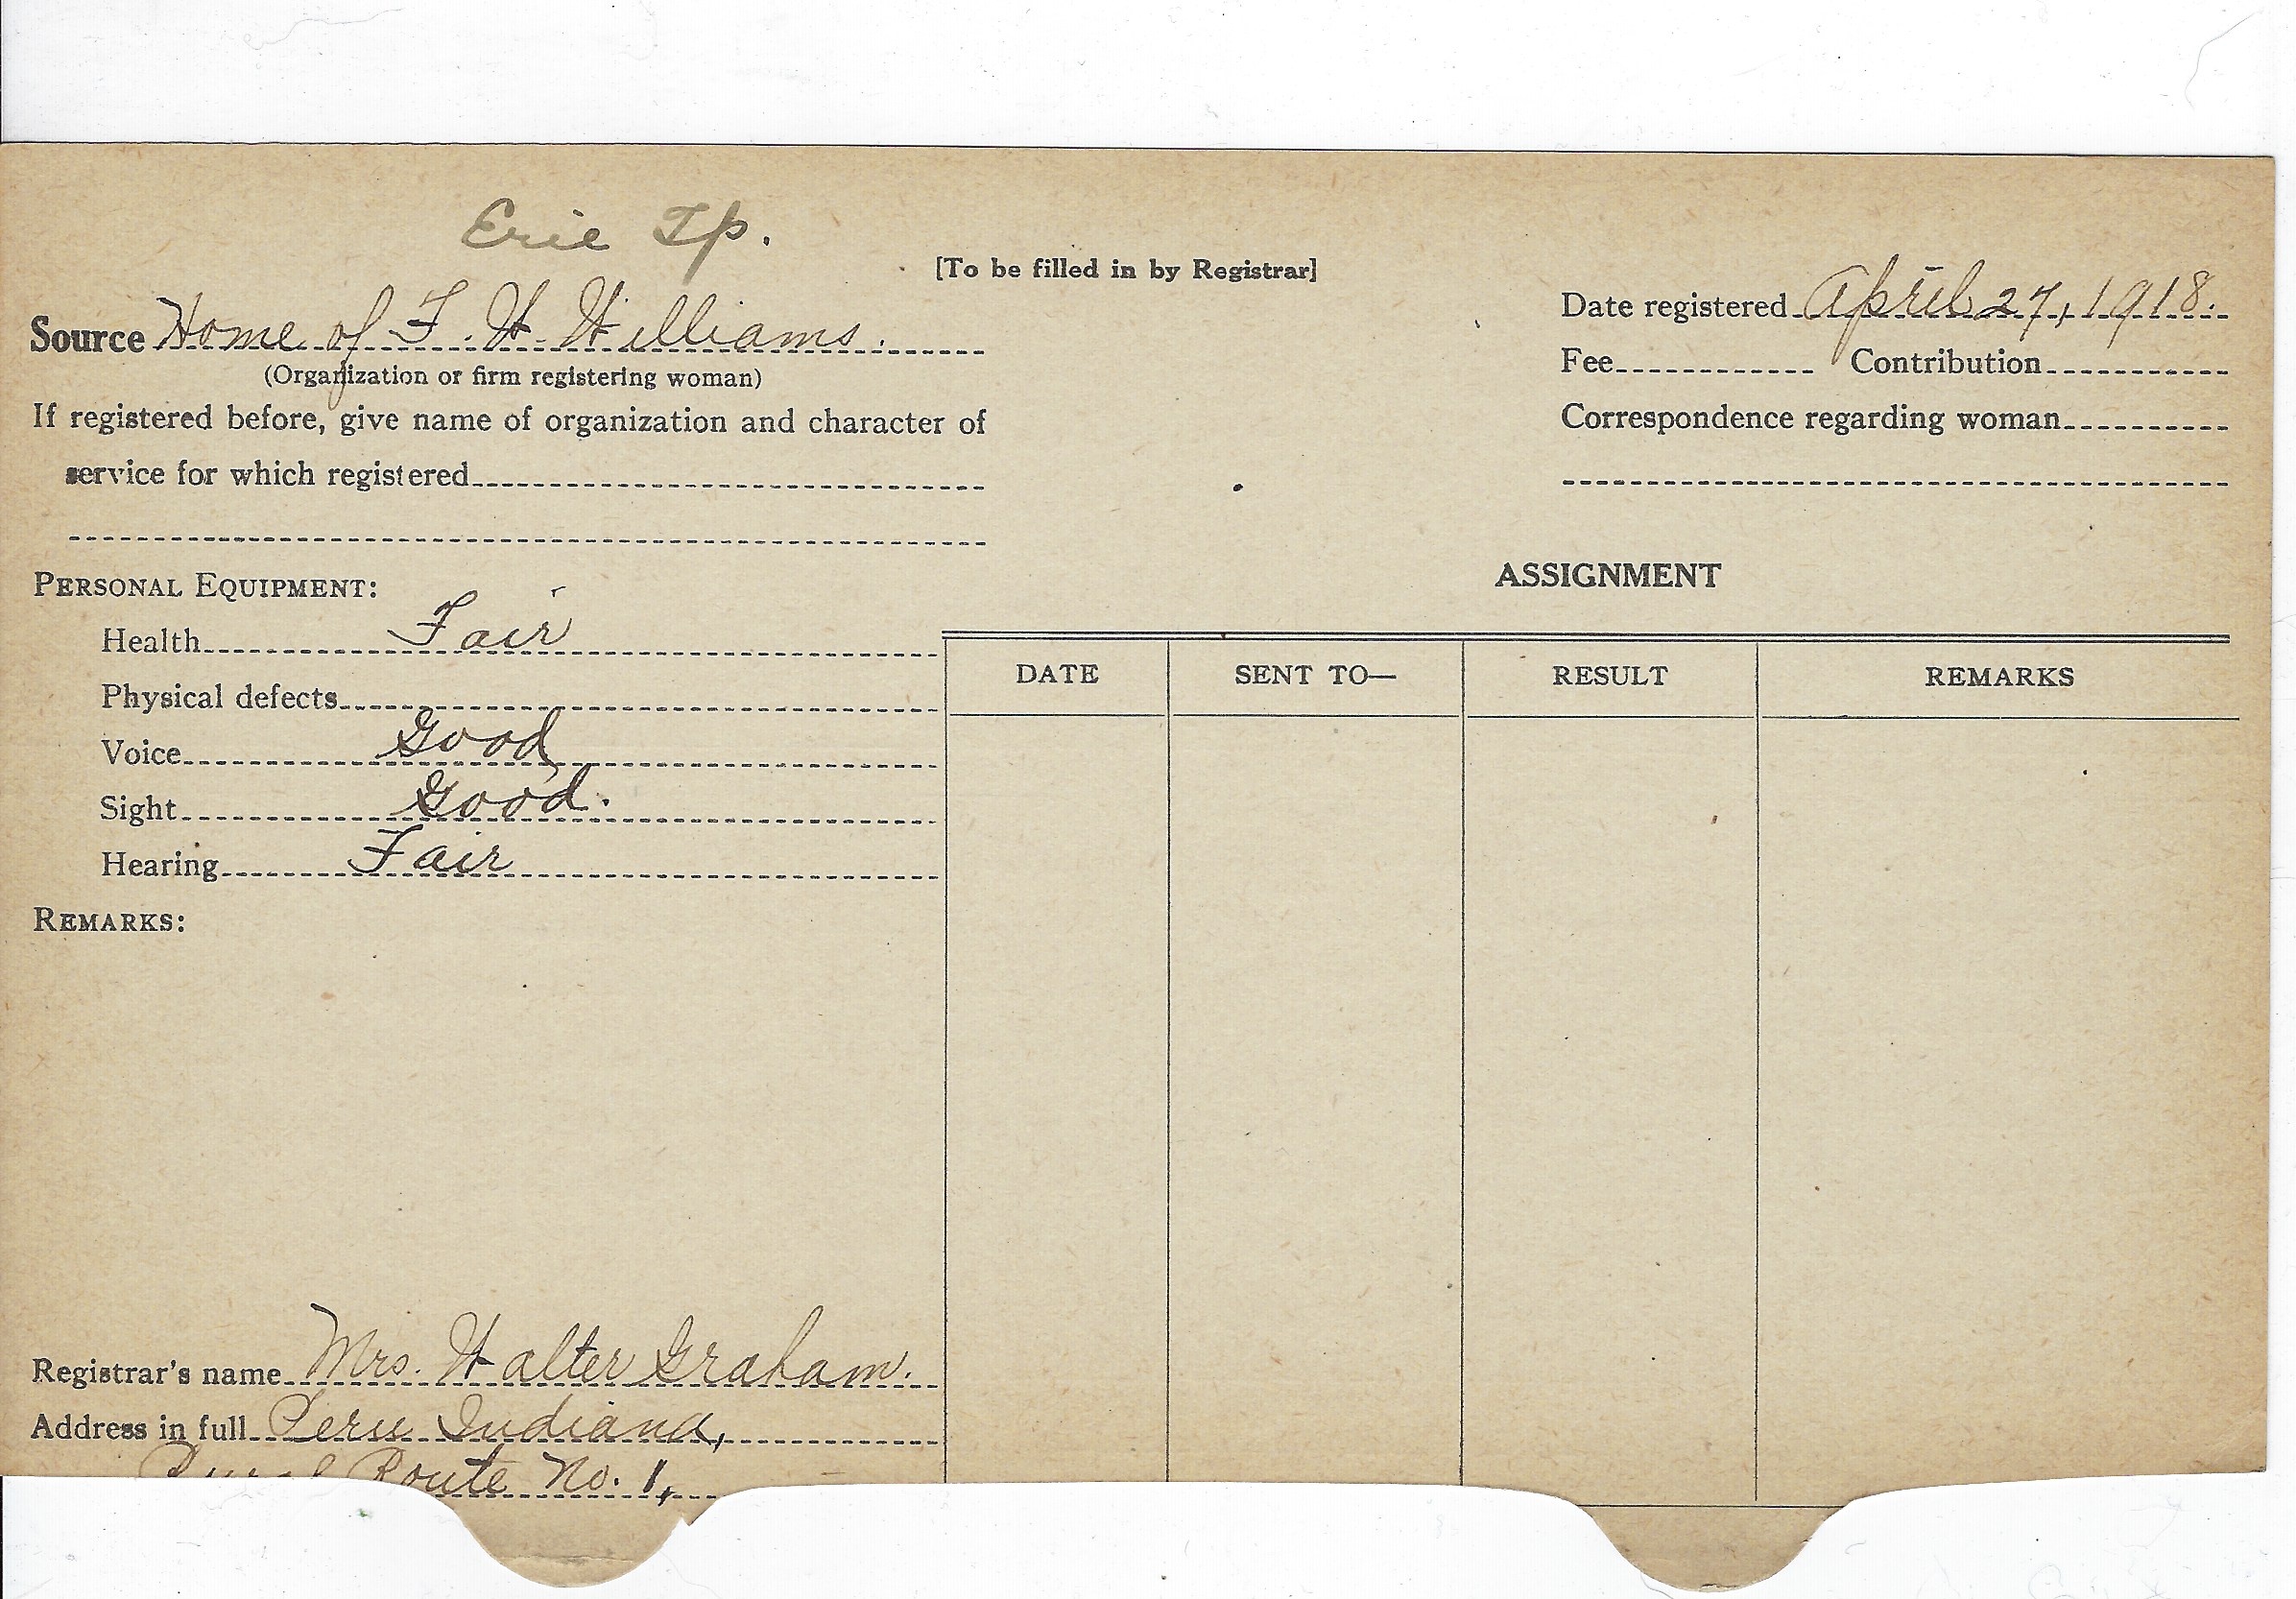 Erie Tp.
[To be filled in by Registrar]
Source Home of F. W. Williams.
(Organization or firm registering woman)
If registered before, give name of organization and character of
service for which registered
Date registered April 27, 1918.
Fee Contribution
Correspondence regarding woman
PERSONAL EQUIPMENT:
Health Fair
Physical defects
Voice Good
Sight Good.
Hearing Fair
REMARKS:
ASSIGNMENT
DATE SENT TO— RESULT REMARKS
Registrar's name Mrs. Walter Graham.
Address in full Peru Indiana,
Rural Route No. 1,